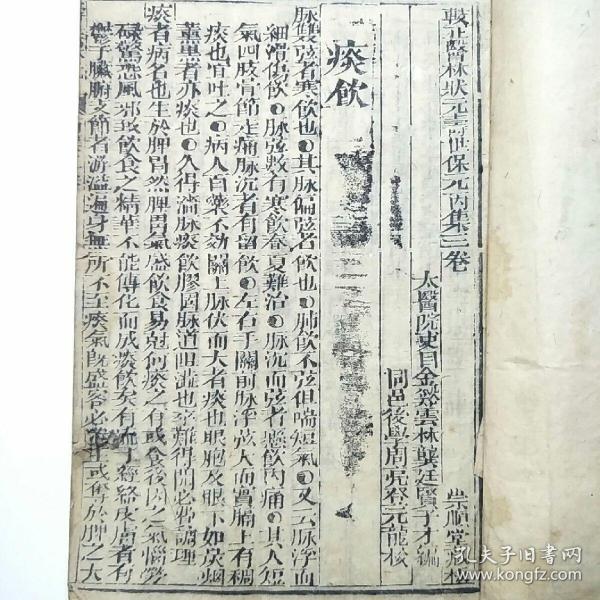 校正醫林狀元壽世保元丙集三卷
太醫院吏目金谿雲林龔廷賢子才編
同邑後學周亮登元龍校
崇順堂梓
痰飲
脉雙弦者寒飲也其脉偏弦者飲也肺飲不弦但喘短氣又云脉浮而
細滑傷飲脉弦數有寒飲春夏難治脉沉而弦者懸飲內痛其人短
氣四肢官節走痛脉沉者有留飲左右手關前脉浮弦大而實膈上有稠
痰也宜吐之病人百藥不効關上脉伏而大者痰也眼胞及眼下如炭烟
薰黑者亦痰也久得濇脉痰飲膠固脉道阻澁也卒難得開必費調理
痰者病名也生於脾胃然脾胃氣盛飲食易尅何痰之有或食後因之氣惱勞
碌驚恐風邪致飲食之精華不能傳化而成痰飲矣有流于經絡皮膚者有
鬱于臟腑支節者游溢遍身無所不至痰氣既盛客必勝主或奪於脾之大
孔夫子旧书网
www.kongfz.com